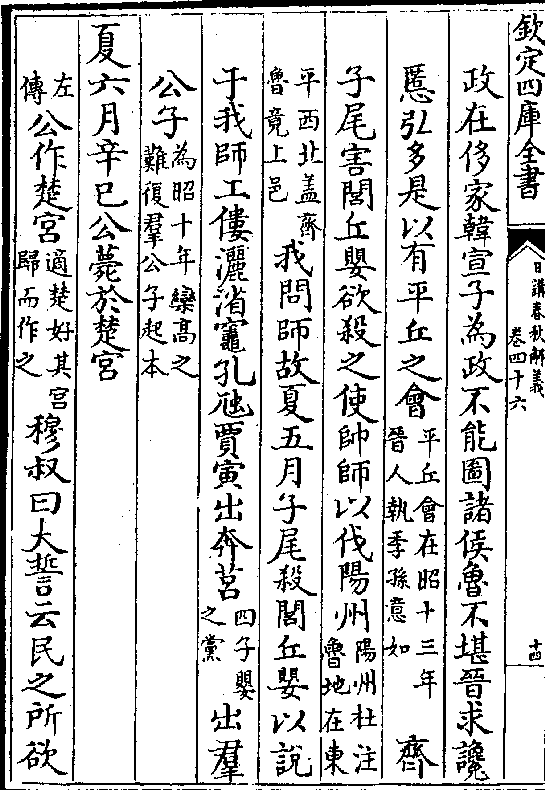 欽定四庫全書
日講春秋解義
卷四十六
十四
政在侈家韓宣子為政不能圖諸侯魯不堪晉求讒
慝弘多是以有平丘之會
平丘會在昭十三年
晉人執季孫意如
齊
子尾害閭丘嬰欲殺之使帥師以伐陽州
陽州杜注
魯地在東
平西北盖齊
魯竟上邑
我問師故夏五月子尾殺閭丘嬰以說
于我師工僂灑渻竈孔虺賈寅出奔莒
四子嬰
之黨
出羣
公子
為昭十年欒高之
難復羣公子起本
夏六月辛巳公薨於楚宮
左
傳
公作楚宮
適楚好其宮
歸而作之
穆叔曰大誓云民之所欲